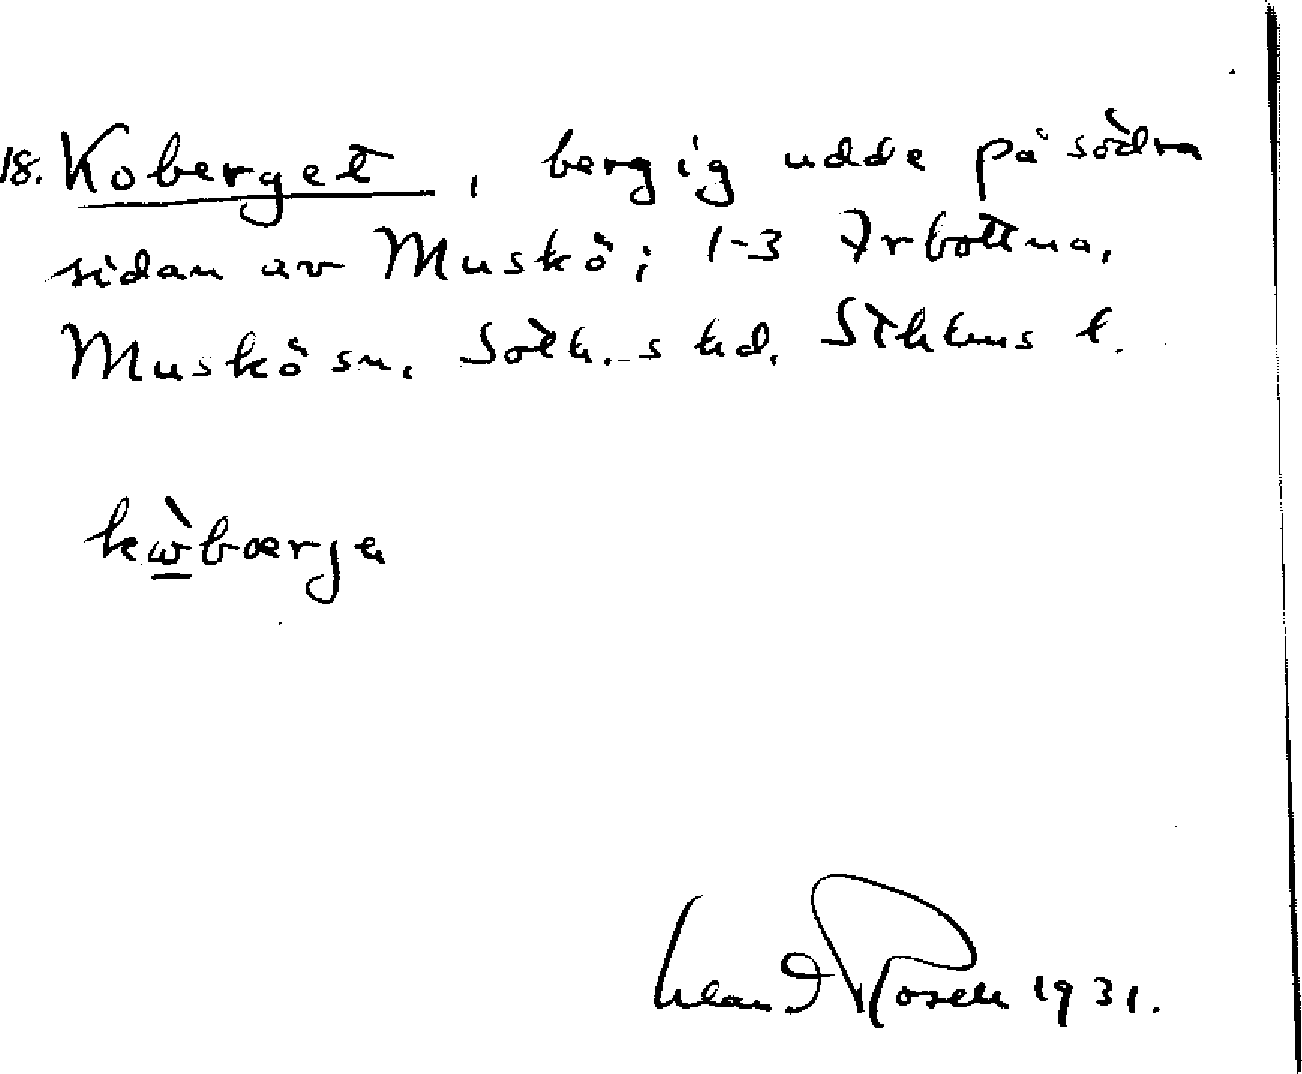 18. Koberget, bergig udde på södra
sidan av Muskö; 1-3 Arbottna,
Muskö sn. Soth.-s hd. Sthlms l.
kὼbærje
Roseli 1931.